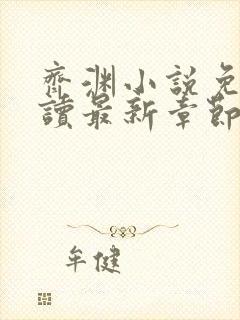 齊渊小說免
讀最新章節
牟健